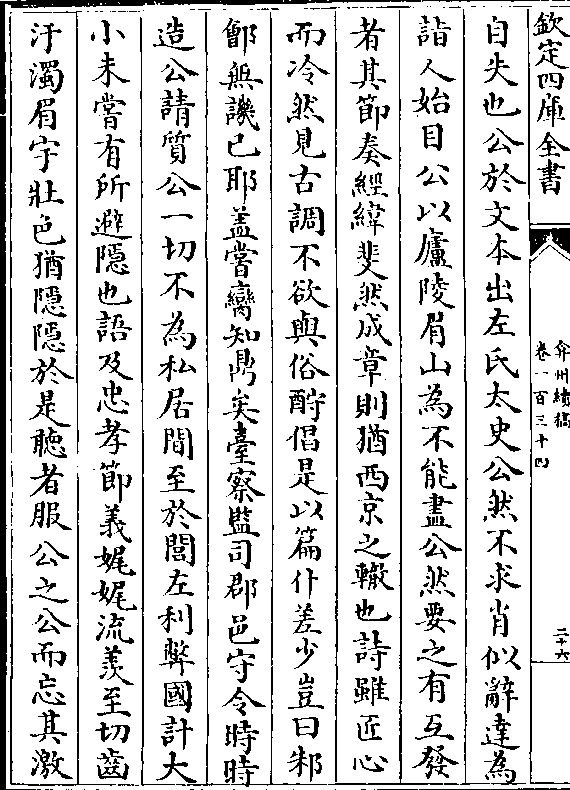 欽定四庫全書
弇州續稿
卷一百三十四
二十六
自失也公於文本出左氏太史公然不求肖似辭達為
詣人始目公以廬陵眉山為不能盡公然要之有互發
者其節奏經緯斐然成章則猶西京之轍也詩雖匠心
而冷然見古調不欲與俗酧倡是以篇什差少豈曰邾
鄶無譏已耶盖嘗臠知鼎矣臺察監司郡邑守令時時
造公請質公一切不為私居間至於閭左利弊國計大
小未嘗有所避隱也語及忠孝節義娓娓流羨至切齒
汙濁眉宇壯色猶隱隱於是聽者服公之公而忘其激